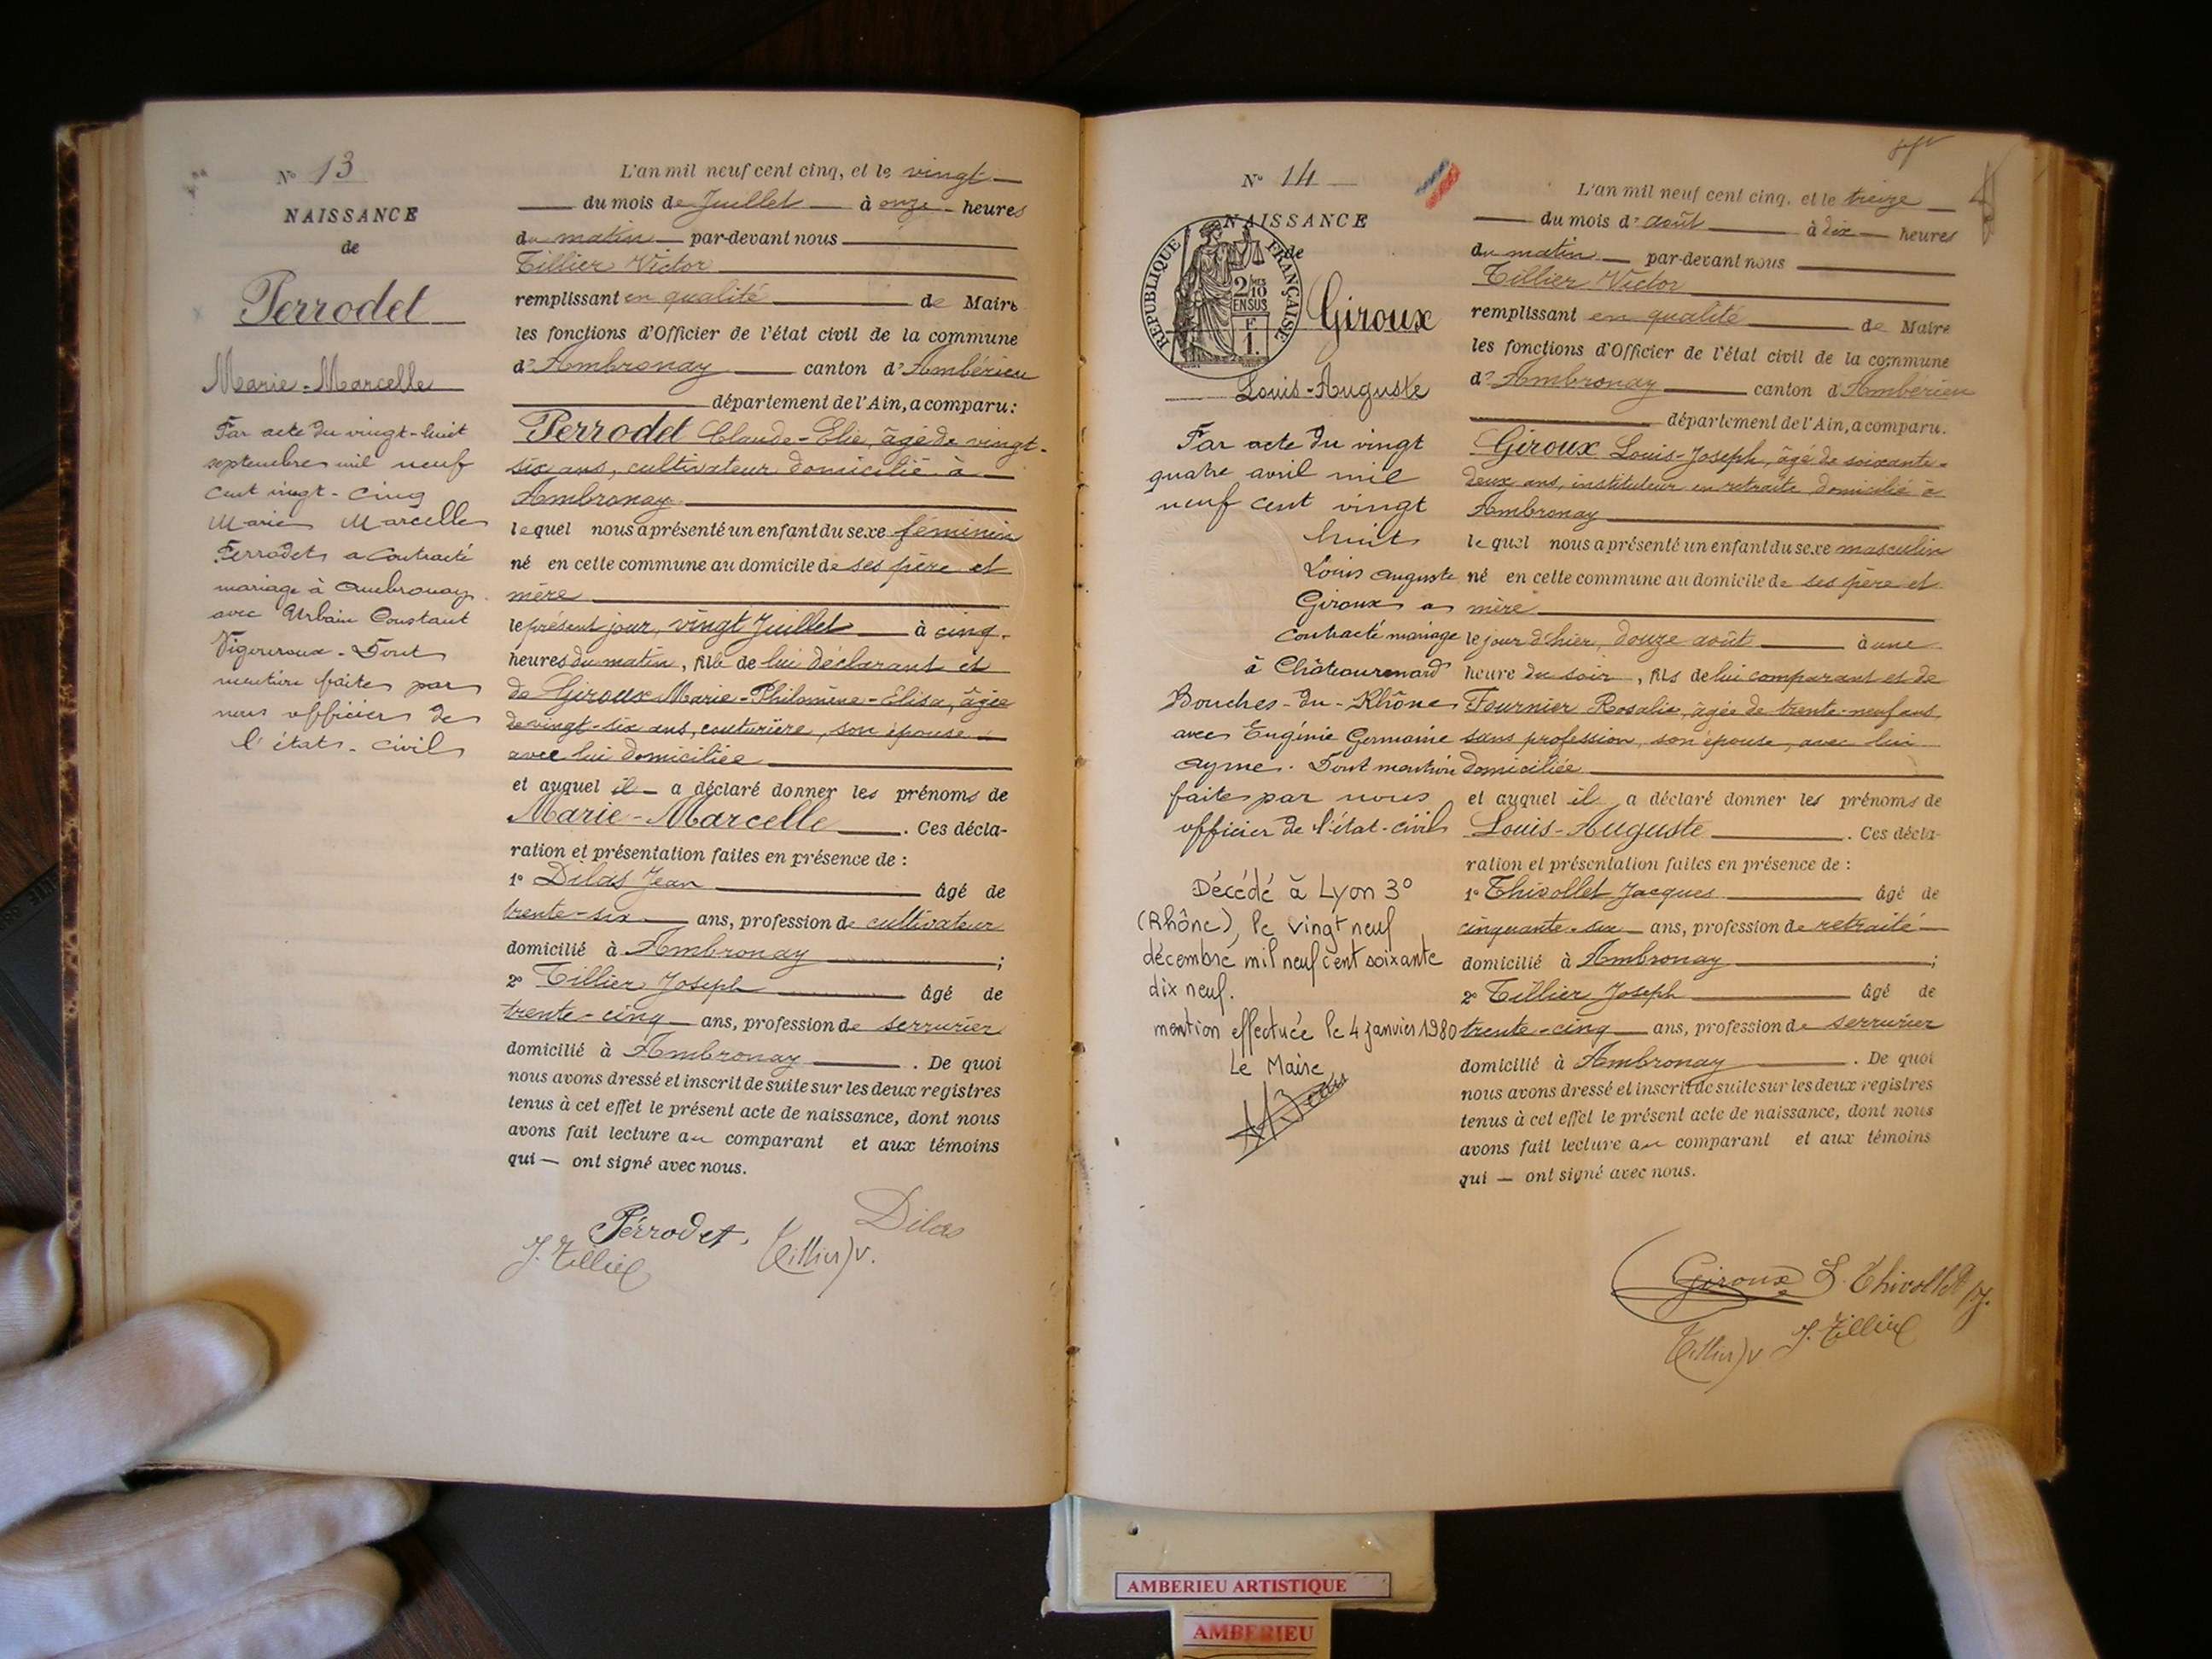 N° 13
NAISSANCE
de
Perrodet
Marie-Marcelle
Par acte du vingt-huit
septembre mil neuf
cent vingt-cinq
Marie Marcelle
Perrodet a contracté
mariage à Ambronay
avec Urbain Constant
Vigouroux. Dont
mention faite par
nous officier de
l'état-civil
L'an mil neuf cent cinq, et le vingt
du mois de Juillet à onze heures
du matin par-devant nous
Tillier Victor
remplissant en qualité de Maire
les fonctions d'Officier de l'état civil de la commune
d'Ambronay canton d'Ambérieu
département de l'Ain, a comparu:
Perrodet Claude-Elie, âgé de vingt-
six ans, cultivateur domicilié à
Ambronay
lequel nous a présenté un enfant du sexe féminin
né en cette commune au domicile de ses père et
mère
le présent jour, vingt Juillet à cinq
heures du matin, fille de lui déclarant et
de Giroux Marie-Philomène-Elisa, âgée
de vingt-six ans, couturière, son épouse
avec lui domiciliée
et auquel il a déclaré donner les prénoms de
Marie-Marcelle. Ces décla-
ration et présentation faites en présence de :
1° Dilas Jean âgé de
trente-six ans, profession de cultivateur
domicilié à Ambronay ;
2° Tillier Joseph âgé de
trente-cinq ans, profession de serrurier
domicilié à Ambronay. De quoi
nous avons dressé et inscrit de suite sur les deux registres
tenus à cet effet le présent acte de naissance, dont nous
avons fait lecture au comparant et aux témoins
qui — ont signé avec nous.
Perrodet, Dilas
J. Tillier Tillier V.
N° 14
NAISSANCE
de
REPUBLIQUE FRANÇAISE
2/10
EN SUS
F
1.
Giroux
Louis-Auguste
Par acte du vingt
quatre avril mil
neuf cent vingt
huit
Louis Auguste
Giroux a
contracté mariage
à Châteaurenard
Bouches-du-Rhône
avec Eugénie Germaine
Ayme. Dont mention
faite par nous
officier de l'état-civil
Décédé à Lyon 3°
(Rhône), le vingt neuf
décembre mil neuf cent soixante
dix neuf.
mention effectuée le 4 janvier 1980
Le Maire
L'an mil neuf cent cinq, et le treize
du mois d'août à dix heures
du matin par-devant nous
Tillier Victor
remplissant en qualité de Maire
les fonctions d'Officier de l'état civil de la commune
d'Ambronay canton d'Ambérieu
département de l'Ain, a comparu.
Giroux Louis-Joseph, âgé de soixante-
deux ans, instituteur en retraite domicilié à
Ambronay
lequel nous a présenté un enfant du sexe masculin
né en cette commune au domicile de ses père et
mère
le jour d'hier, douze août à une
heure du soir, fils de lui comparant et de
Fournier Rosalie, âgée de trente-neuf ans,
sans profession, son épouse, avec lui
domiciliée
et auquel il a déclaré donner les prénoms de
Louis-Auguste. Ces décla-
ration et présentation faites en présence de :
1° Thivollet Jacques âgé de
cinquante-six ans, profession de retraité
domicilié à Ambronay ;
2° Tillier Joseph âgé de
trente-cinq ans, profession de serrurier
domicilié à Ambronay. De quoi
nous avons dressé et inscrit de suite sur les deux registres
tenus à cet effet le présent acte de naissance, dont nous
avons fait lecture au comparant et aux témoins
qui — ont signé avec nous.
Giroux L. Thivollet
Tillier V J. Tillier
AMBERIEU ARTISTIQUE
AMBERIEU